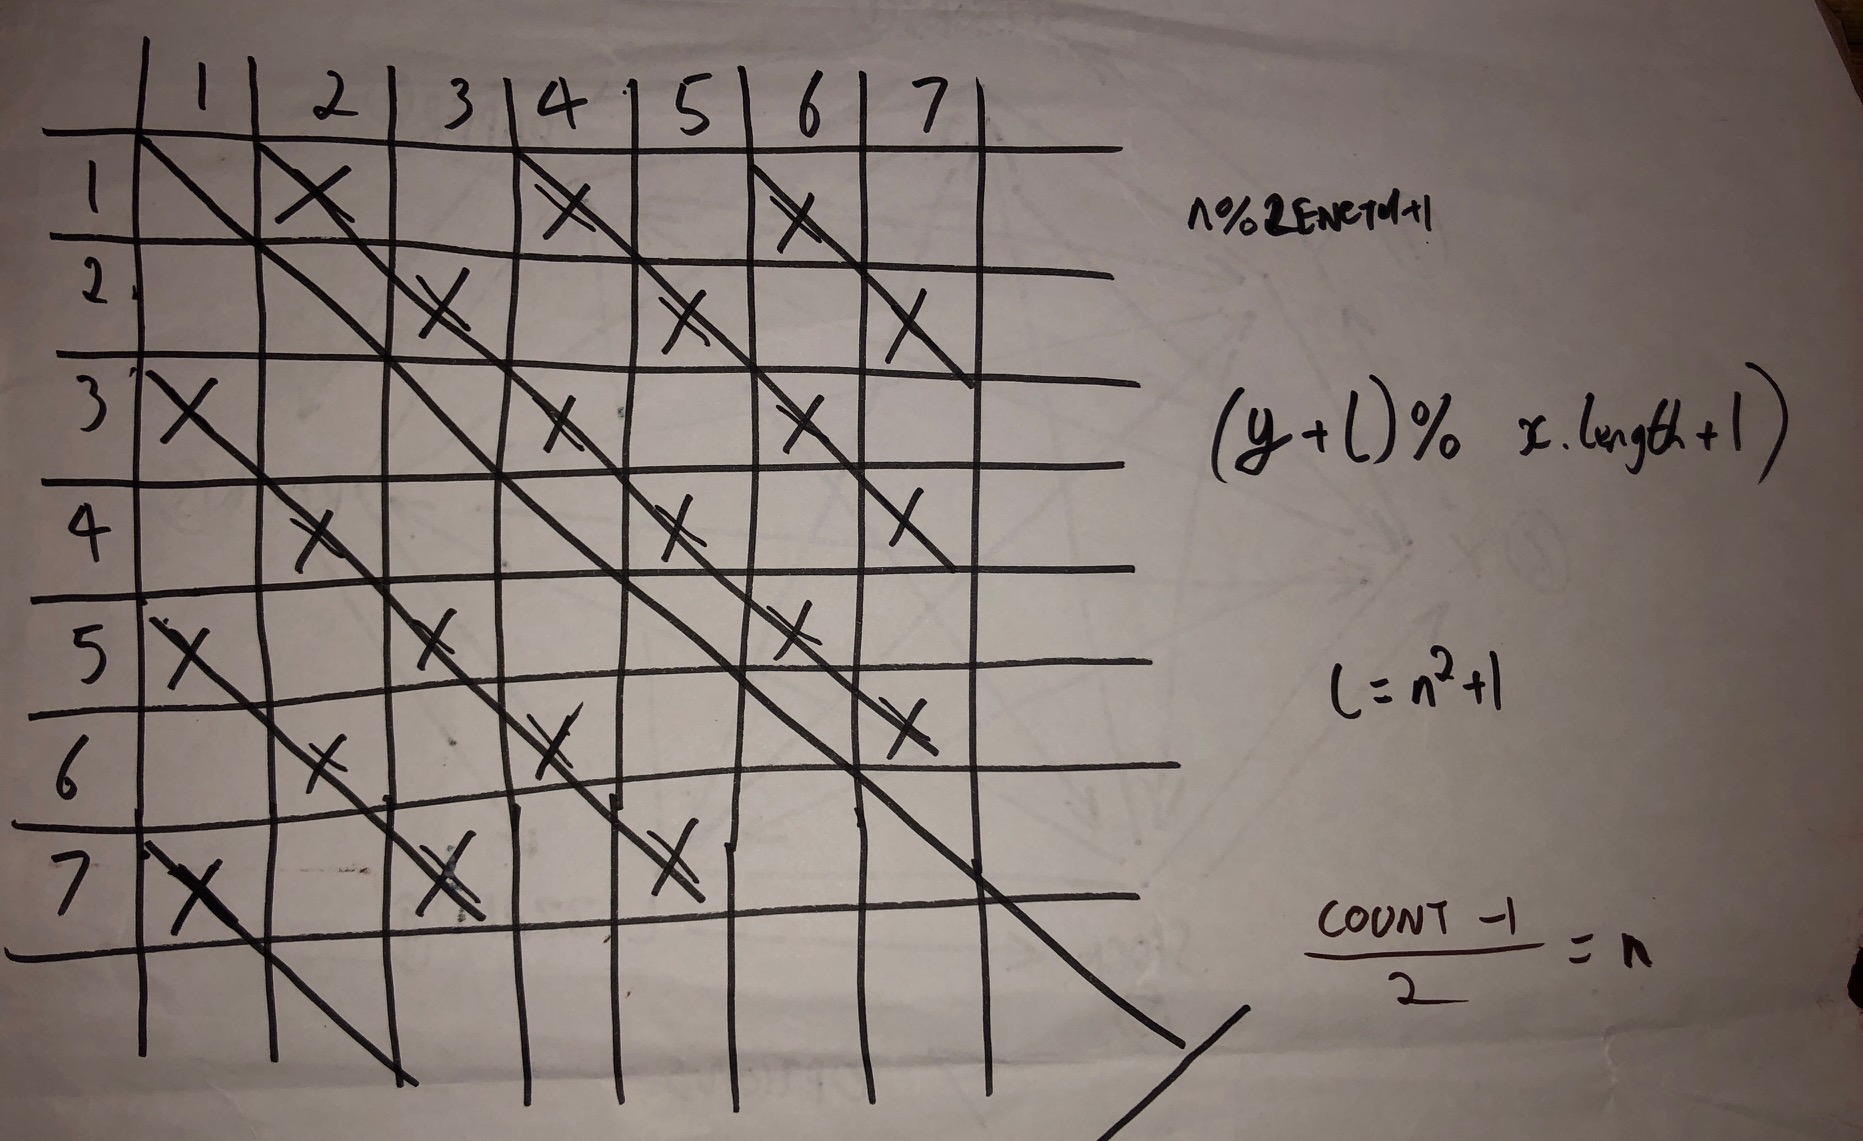 1 2 3 4 5 6 7
1 X X X
2 X X X
3 X X X
4 X X X
5 X X X
6 X X X
7 X X X
(y+l)% x.length+1)
l=n²+1
COUNT -1
2
= n